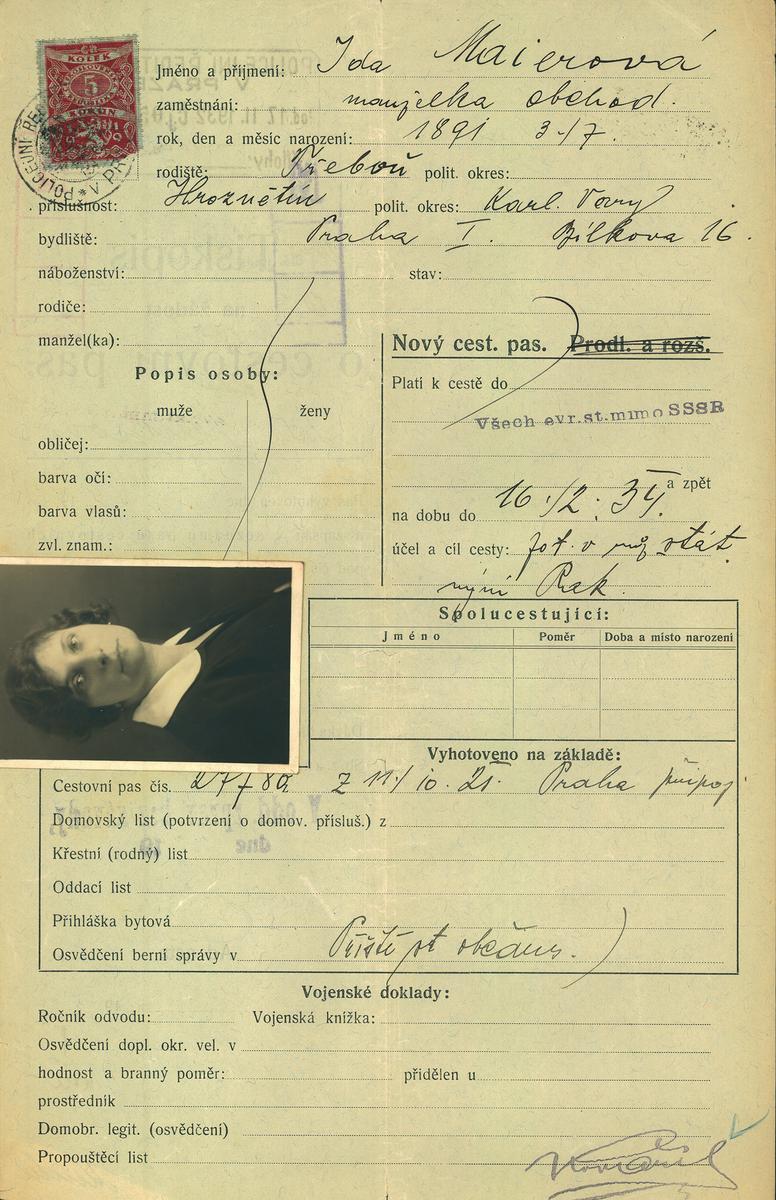 KOLEK
5
KORUN
Jméno a příjmení: Ida Maierová
zaměstnání: manželka obchod.
rok, den a měsíc narození: 1891 3/7.
rodiště: Třeboň polit. okres:
příslušnost: Hroznětín polit. okres: Karl. Vary
bydliště: Praha I. Bílkova 16.
náboženství: stav:
rodiče:
manžel(ka):
Nový cest. pas. Prodl. a rozš.
Popis osoby:
Platí k cestě do
muže ženy
Všech evr.st.mimo SSSR
obličej:
barva očí:
a zpět
barva vlasů:
na dobu do 16./2.
zvl. znam.:
účel a cíl cesty: stát
nyní Rak.
Spolucestující:
Jméno Poměr Doba a místo narození
Vyhotoveno na základě:
Cestovní pas čís. z 11/10. Praha
Domovský list (potvrzení o domov. přísluš.) z
Křestní (rodný) list
Oddací list
Přihláška bytová
Osvědčení berní správy v
Vojenské doklady:
Ročník odvodu: Vojenská knížka:
Osvědčení dopl. okr. vel. v
hodnost a branný poměr: přidělen u
prostředník
Domobr. legit. (osvědčení)
Propouštěcí list